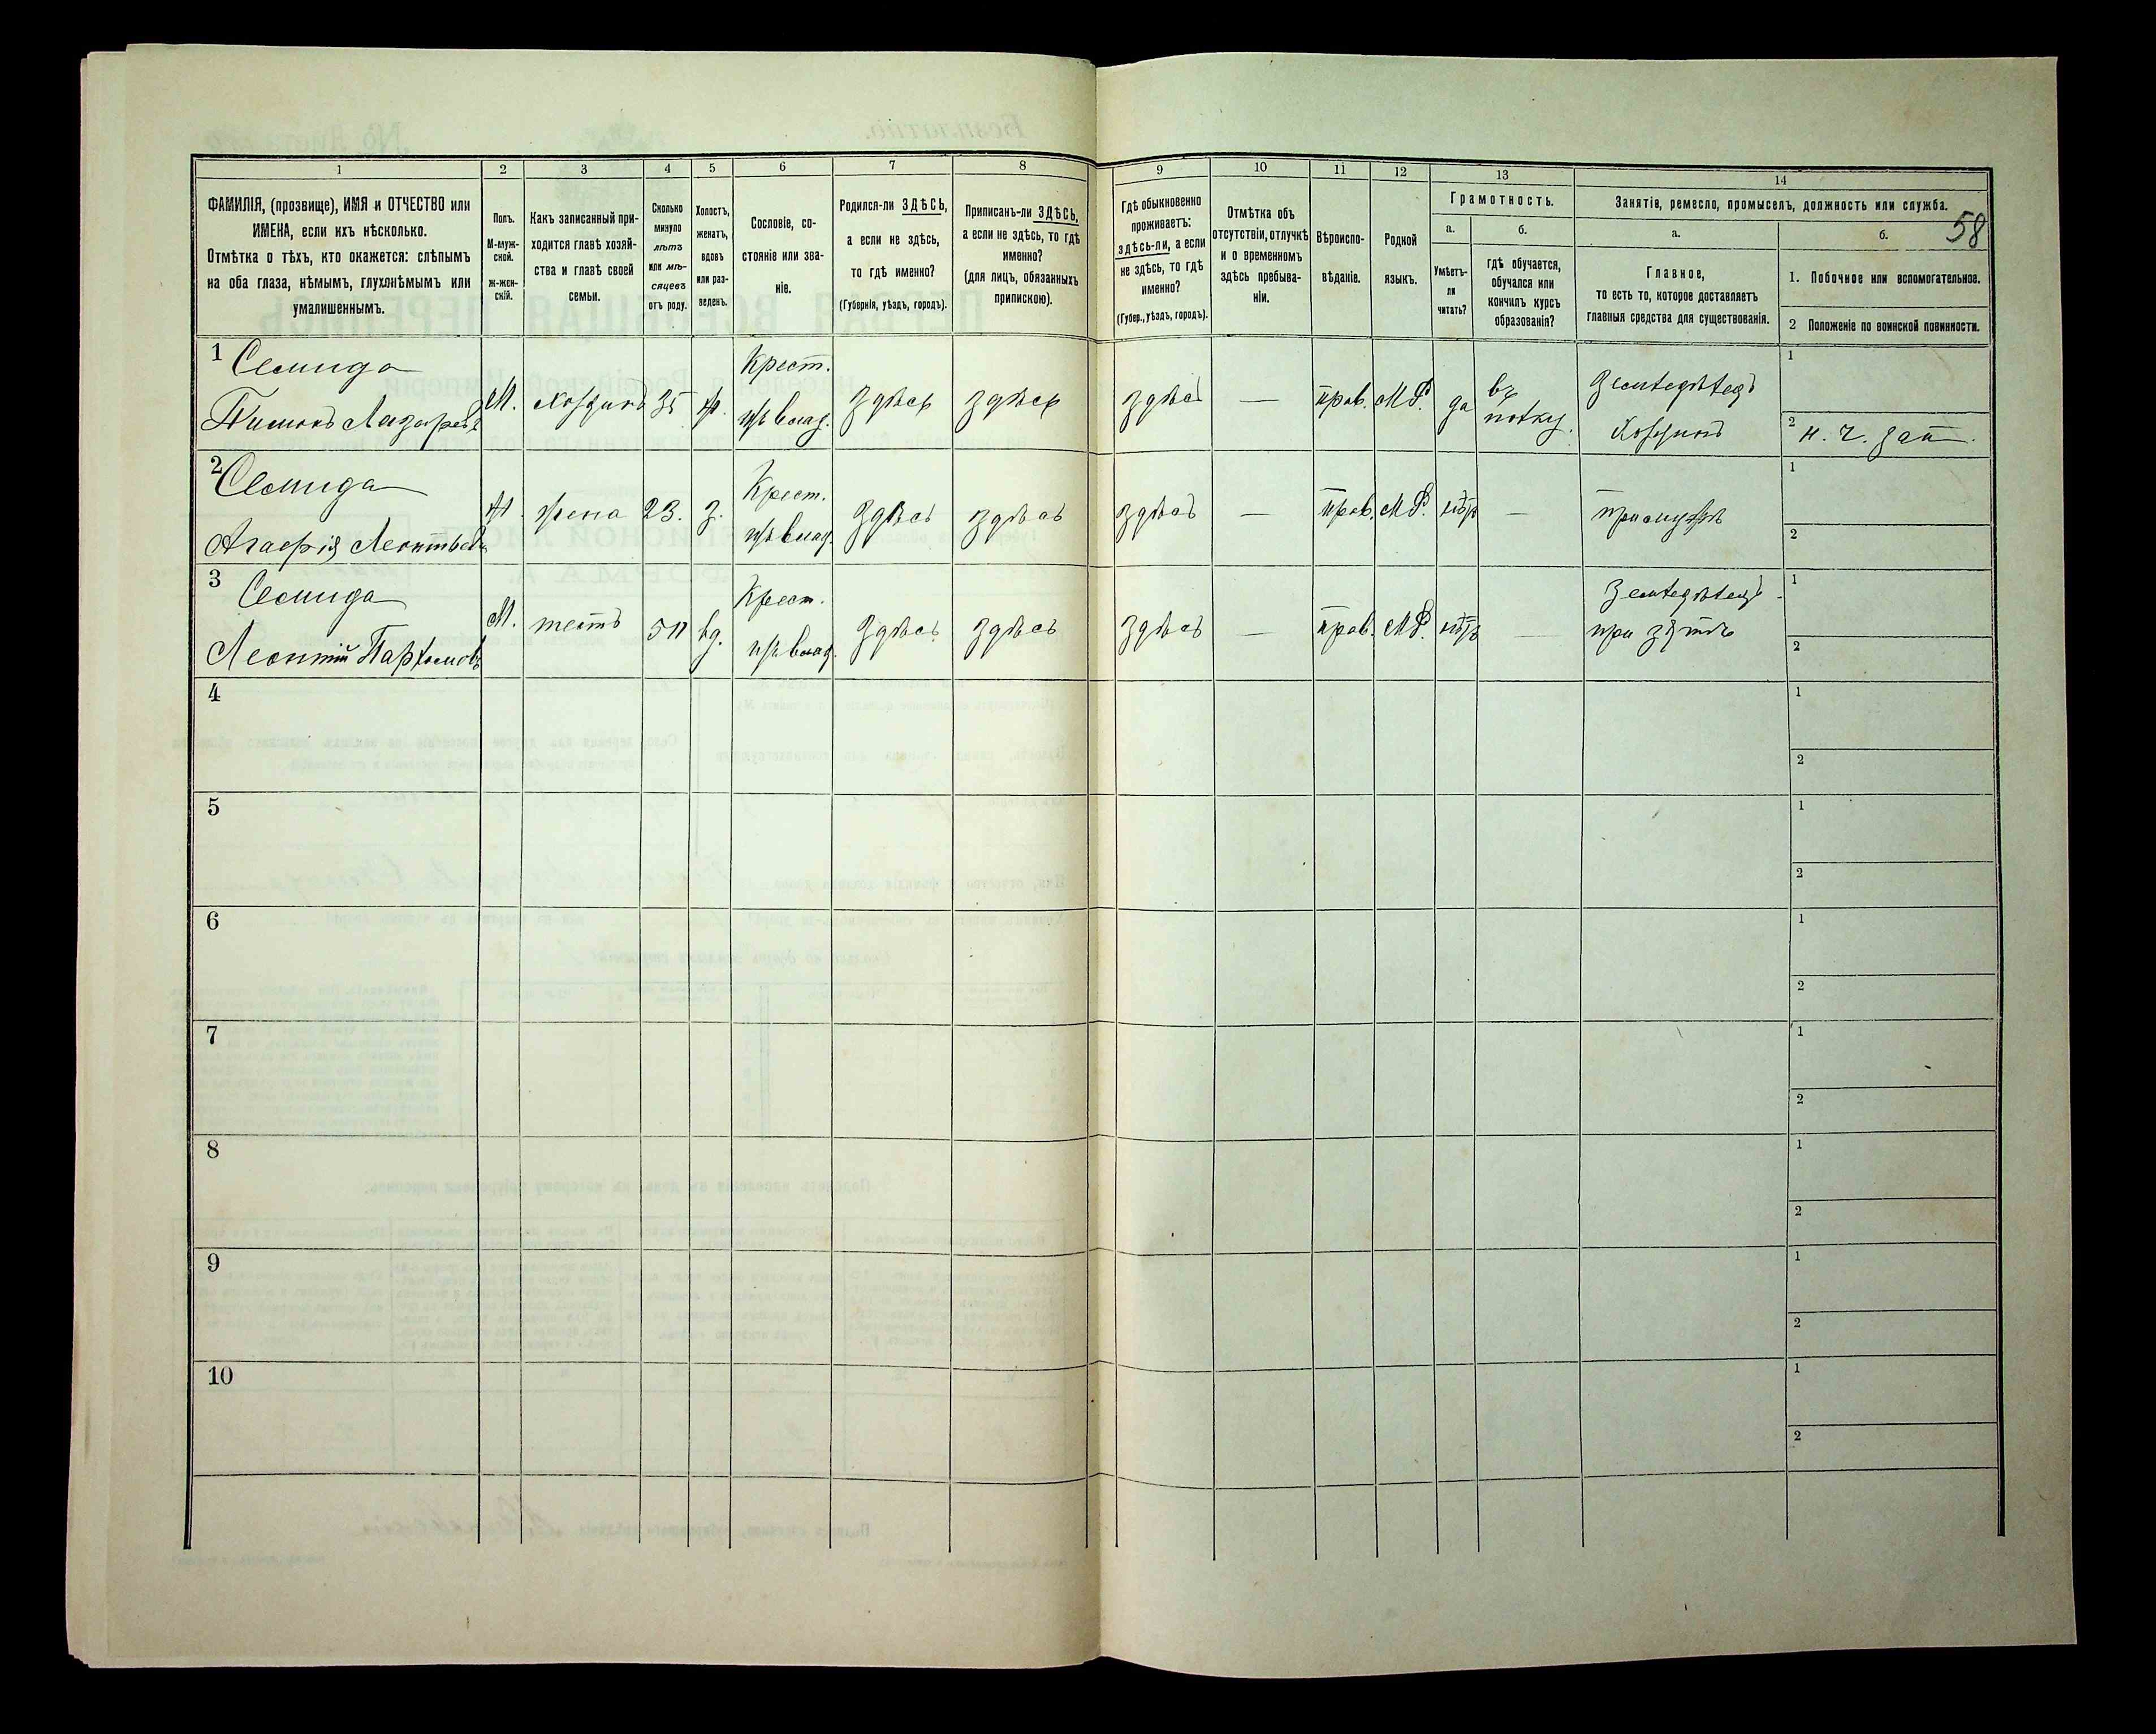 58
1
2
3
4
5
6
7
8
9
10
11
12
13
14
ФАМИЛІЯ, (прозвище), ИМЯ и ОТЧЕСТВО или
ИМЕНА, если ихъ нѣсколько.
Отмѣтка о тѣхъ, кто окажется: слѣпымъ
на оба глаза, нѣмымъ, глухонѣмымъ или
умалишеннымъ.
Полъ.
М-муж-
ской.
Ж-жен-
скій.
Какъ записанный при-
ходится главѣ хозяй-
ства и главѣ своей
семьи.
Сколько
минуло
лѣтъ
или мѣ-
сяцевъ
отъ роду.
Холостъ,
женатъ,
вдовъ
или раз-
веденъ.
Сословіе, со-
стояніе или зва-
ніе.
Родился-ли ЗДѢСЬ,
а если не здѣсь,
то гдѣ именно?
(Губернія, уѣздъ, городъ).
Приписанъ-ли ЗДѢСЬ,
а если не здѣсь, то гдѣ
именно?
(для лицъ, обязанныхъ
припискою).
Гдѣ обыкновенно
проживаетъ:
здѣсь-ли, а если
не здѣсь, то гдѣ
именно?
(Губер., уѣздъ, городъ).
Отмѣтка объ
отсутствіи, отлучкѣ
и о временномъ
здѣсь пребыва-
ніи.
Вѣроиспо-
вѣданіе.
Родной
языкъ.
Грамотность.
а.
Умѣетъ-
ли
читать?
б.
гдѣ обучается,
обучался или
кончилъ курсъ
образованія?
Занятія, ремесло, промыселъ, должность или служба.
а.
Главное,
то есть то, которое доставляетъ
главныя средства для существованія.
б.
1. Побочное или вспомогательное.
2 Положеніе по воинской повинности.
1 Семида
Тимонъ Лазаревъ
М. хозяинъ 35 ж. Крест. здѣсь здѣсь здѣсь — прав. М.Р. да въ Земледѣлецъ
Хозяинъ
1
2 н. ч. зап.
2 Семида
Агафія Леонтьева
Ж. жена 23. з. Крест. здѣсь здѣсь здѣсь — прав. М.Р. нѣтъ — при мужѣ
1
2
3 Семида
Леонтій Парфеновъ
М. тесть вд. Крест. здѣсь здѣсь здѣсь — прав. М.Р. нѣтъ — Земледѣлецъ
при зятѣ
1
2
4
1
2
5
1
2
6
1
2
7
1
2
8
1
2
9
1
2
10
1
2